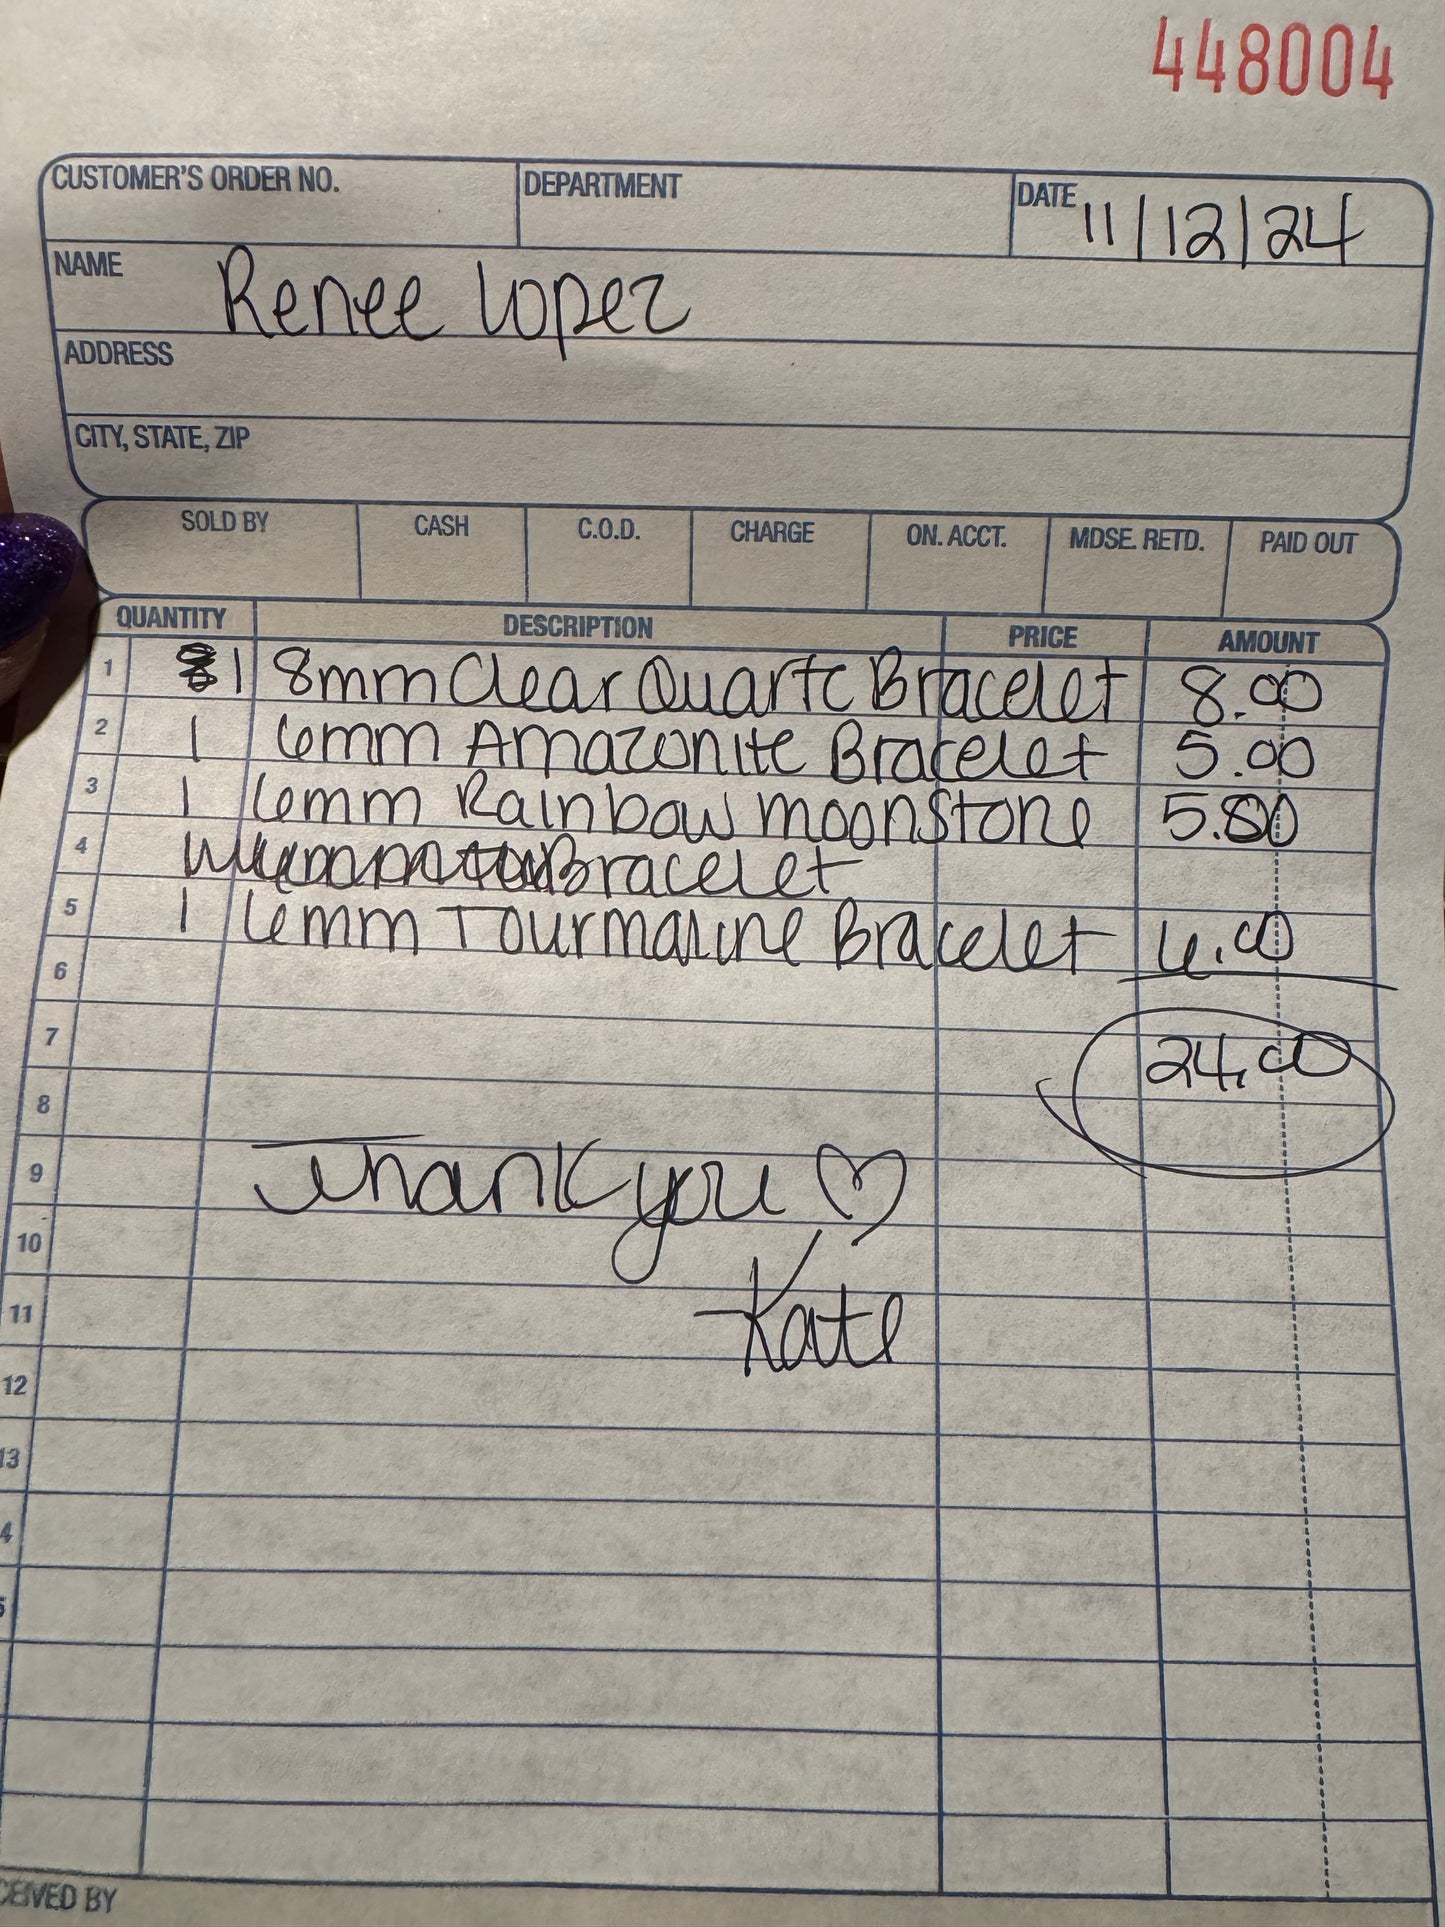 448004
CUSTOMER'S ORDER NO. DEPARTMENT DATE 11/12/24
NAME Renee Lopez
ADDRESS
CITY, STATE, ZIP
SOLD BY CASH C.O.D. CHARGE ON. ACCT. MDSE. RETD. PAID OUT
QUANTITY DESCRIPTION PRICE AMOUNT
1 1 8mm Clear Quartz Bracelet 8.00
2 1 6mm Amazonite Bracelet 5.00
3 1 6mm Rainbow moonstone 5.00
4 Bracelet
5 1 6mm Tourmaline Bracelet 6.00
6
7 24.00
8
9 Thank you ♡
10
11 Kate
12
13
4
5
CEIVED BY